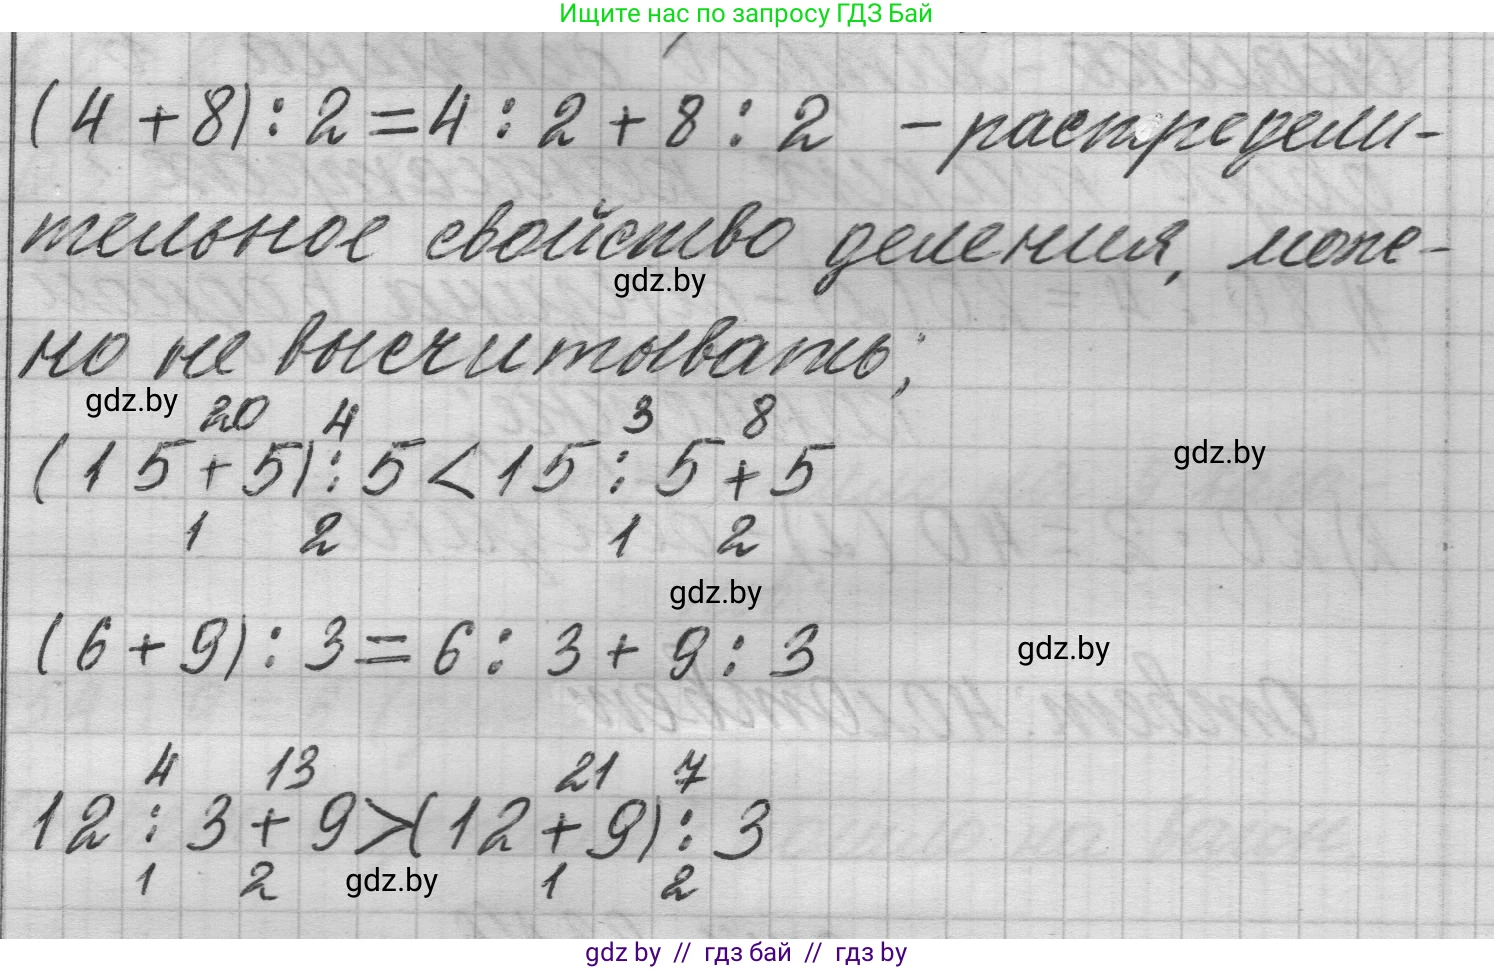 Ищите нас по запросу ГДЗ Бай
(4 + 8) : 2 = 4 : 2 + 8 : 2 - распредели-
тельное свойство деления, може-
gdz.by
но не высчитывать;
gdz.by 20 4 3 8
(15 + 5) : 5 < 15 : 5 + 5
gdz.by
1 2 1 2
gdz.by
(6 + 9) : 3 = 6 : 3 + 9 : 3
gdz.by
4 13 21 7
12 : 3 + 9 > (12 + 9) : 3
1 2 gdz.by 1 2
gdz.by // гдз бай // гдз by